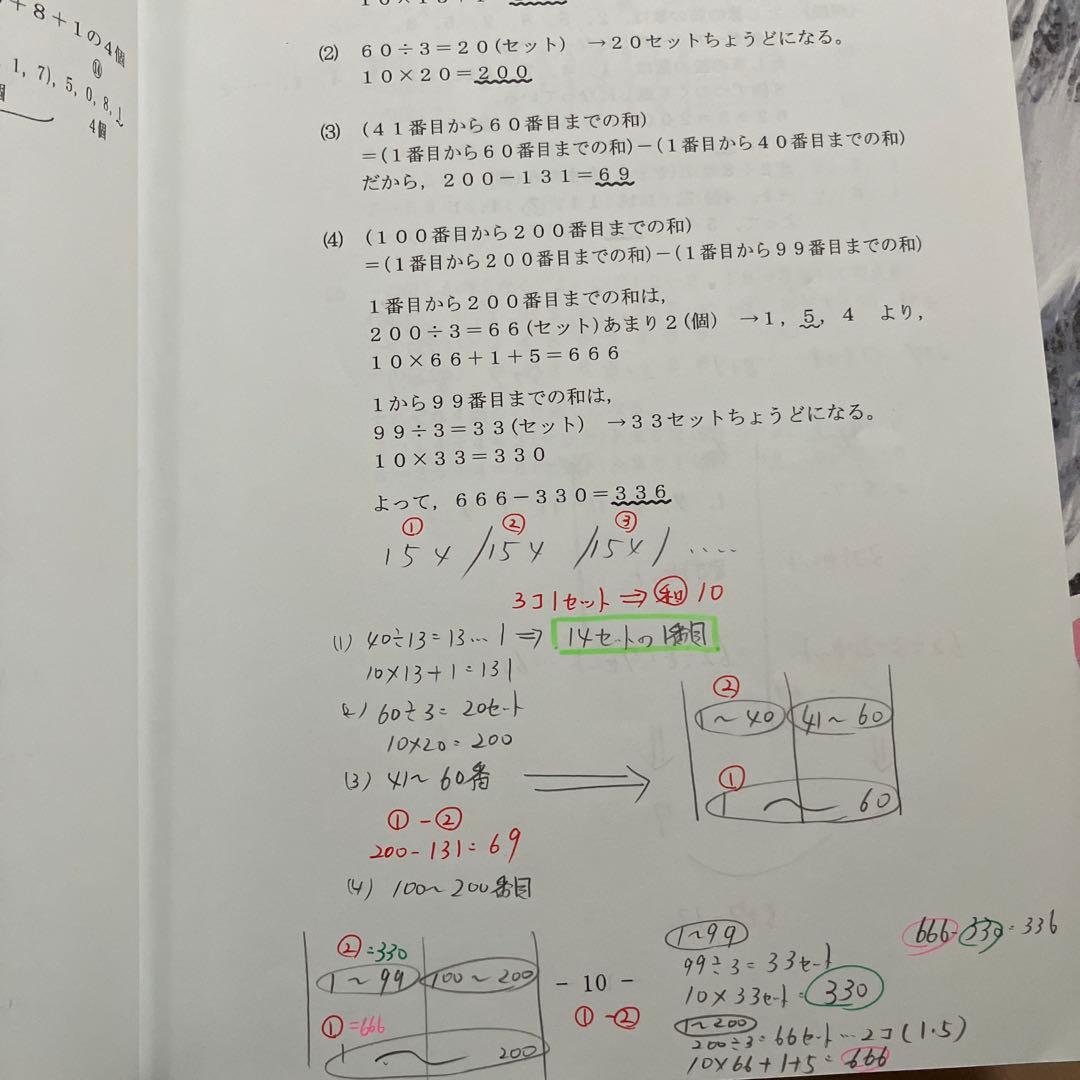 +8+1の4個
⑭
1, 7), 5, 0, 8, 1
4個
(2) 60÷3=20(セット) →20セットちょうどになる。
10×20=200
(3) (41番目から60番目までの和)
=(1番目から60番目までの和)-(1番目から40番目までの和)
だから，200-131=69
(4) (100番目から200番目までの和)
=(1番目から200番目までの和)-(1番目から99番目までの和)
1番目から200番目までの和は，
200÷3=66(セット)あまり2(個) →1，5，4 より，
10×66+1+5=666
1から99番目までの和は，
99÷3=33(セット) →33セットちょうどになる。
10×33=330
よって，666-330=336
① ② ③
154/154/154/....
3コ1セット⇒㊒和10
(1) 40÷13=13…1⇒14セットの1番目
10×13+1=131
(2) 60÷3=20セット
10×20=200
(3) 41～60番
①-②
200-131=69
②
1～40 41～60
①
1～60
(4) 100～200番目
②=330
1～99 100～200
①=666
1～200
- 10 -
①-②
1～99
99÷3=33セット
10×33セット=330
1～200
200÷3=66セット…2コ(1・5)
10×66+1+5=666
666-330=336